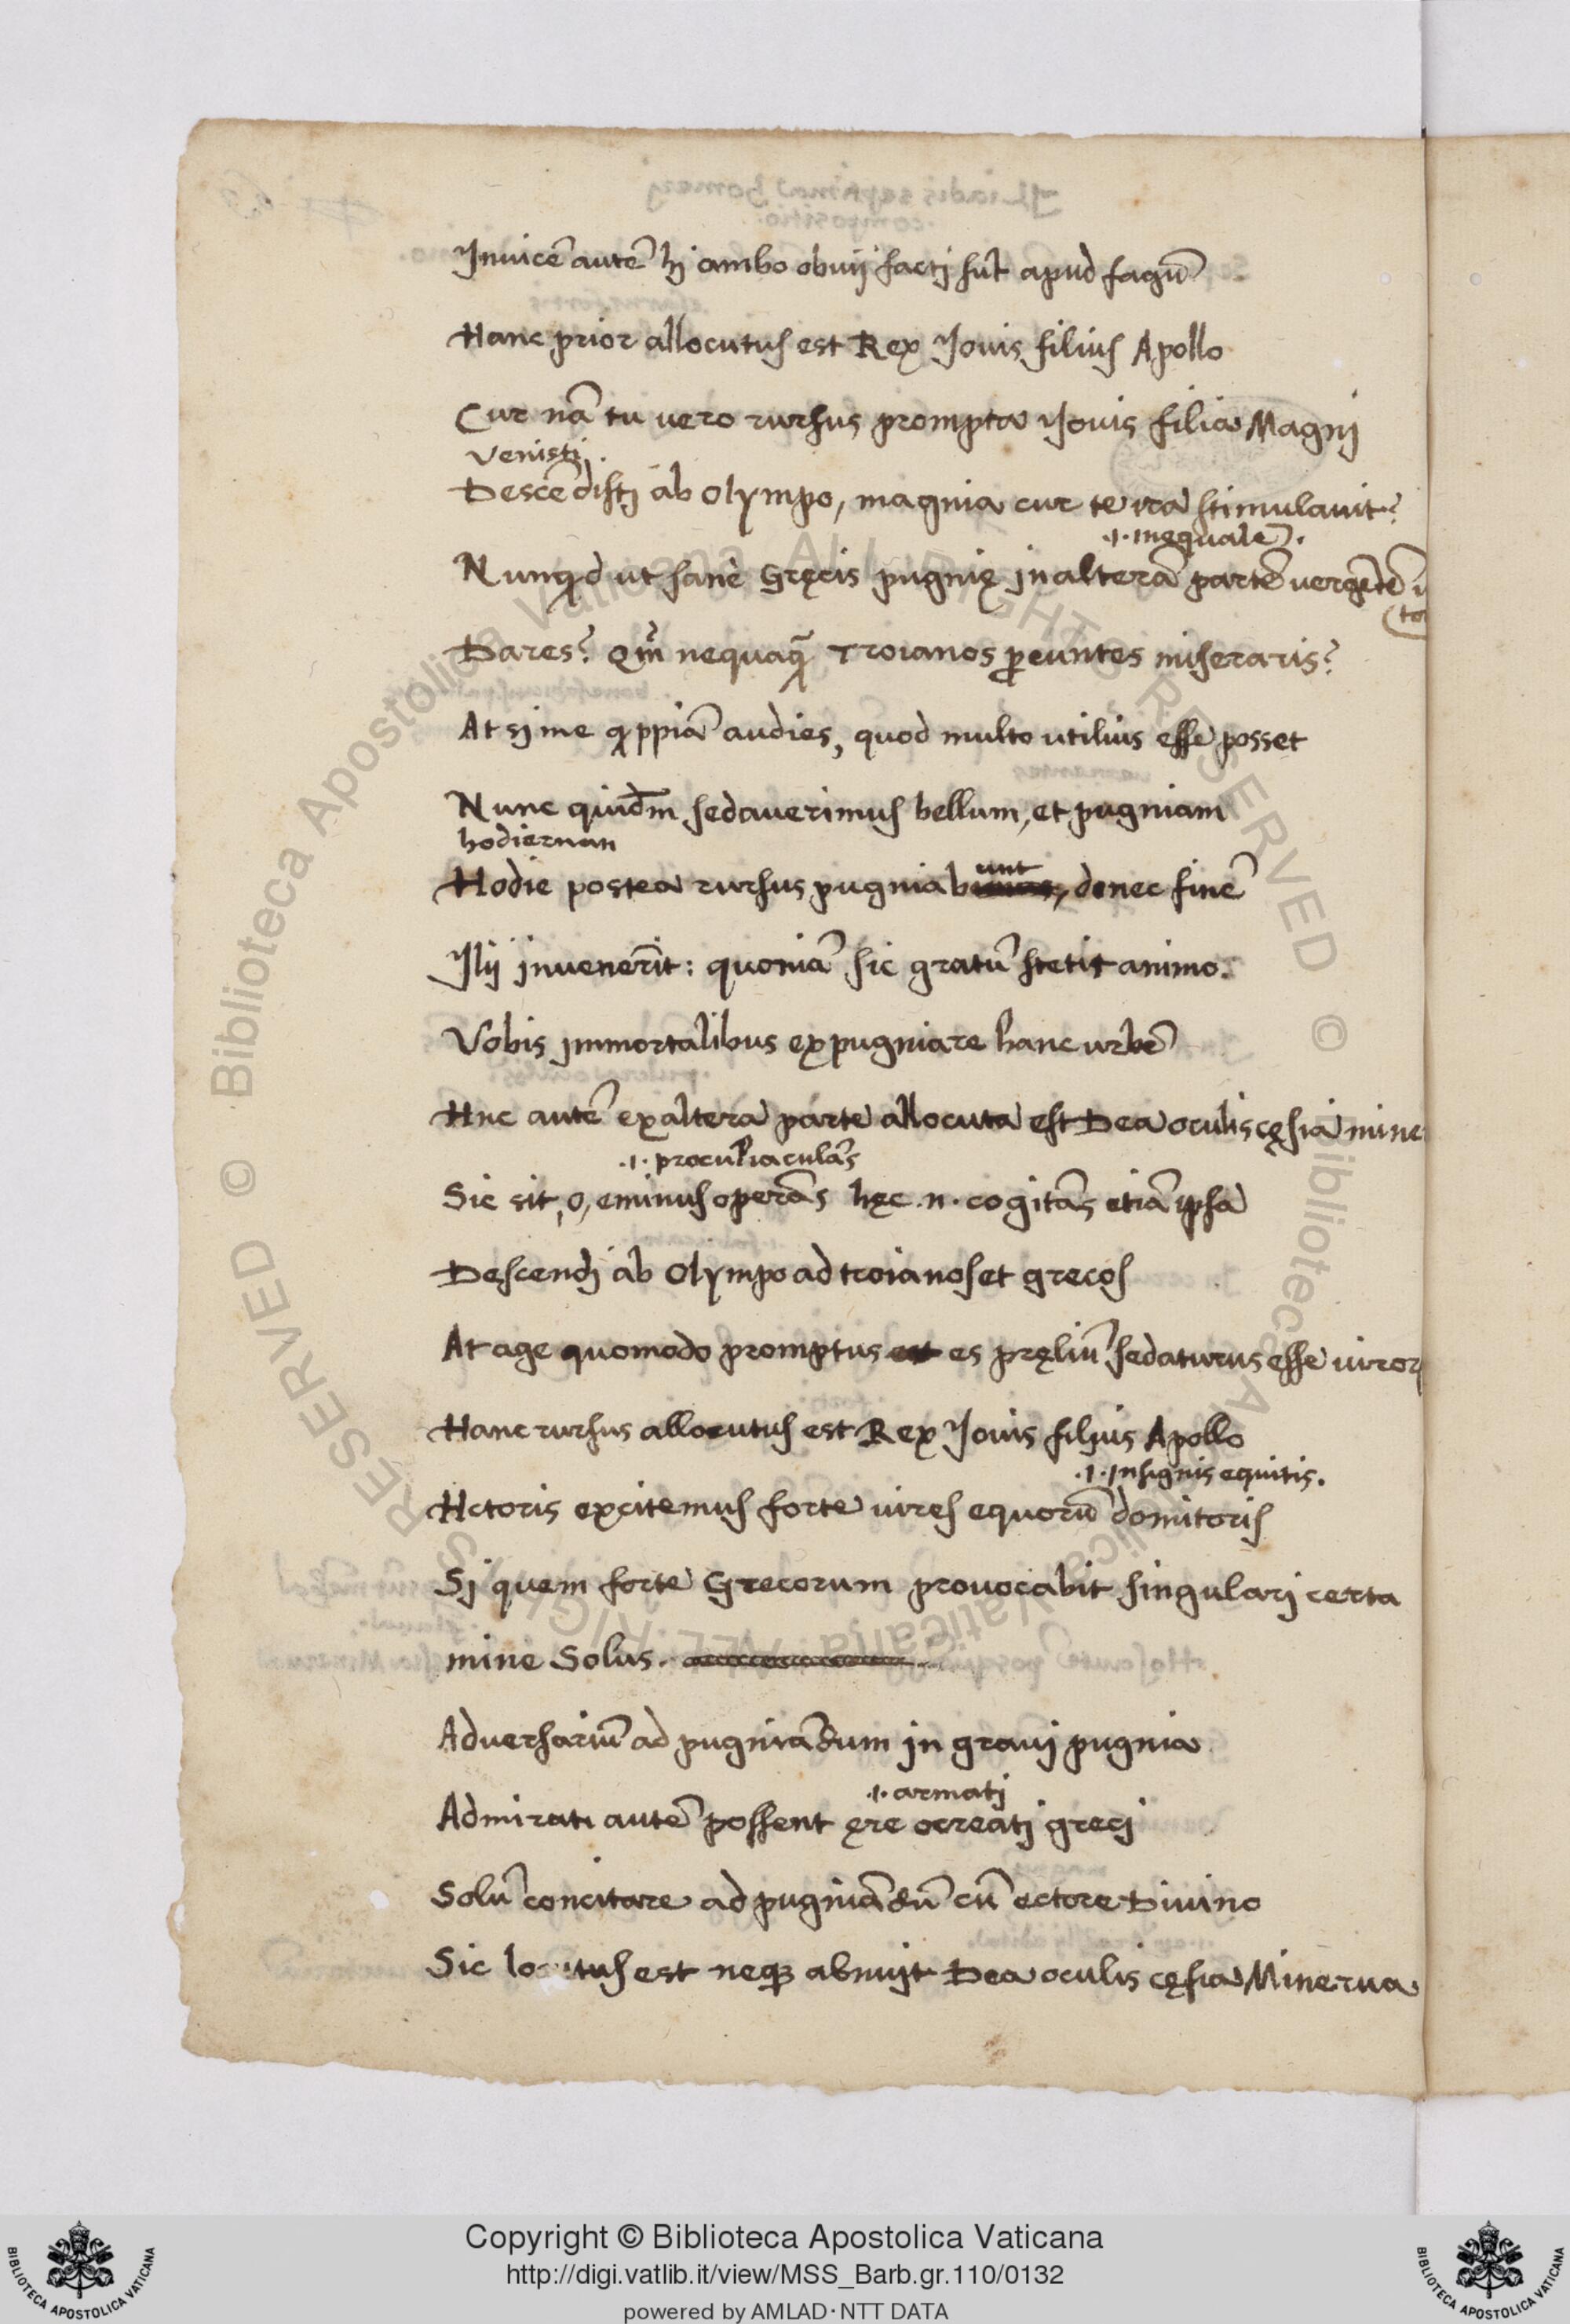 Jnuicē autē hj ambo obuij factj sūt apud fagū
Hanc prior allocutus est Rex Jouis filius Apollo
Cur nā tu uero rursus prompta Jouis filia Magnj
Venisti.
Descēdistj ab Olympo, magnia cur te ira stimulauit?
.i. inequalē.
Nunqd ut sanè Gręcis pugnię jn alterā partē uergētē
Dares? Qm̄ nequaq̄ Troianos peuntes miseraris?
At sj me audies, quod multo utilius esse posset
Nunc quidm̄ sedauerimus bellum, et pugniam
hodiernan
unt
Hodie postea rursus pugniab, donec finē
Jlij jnuenerīt: quoniā sic gratū stetit animo.
Vobis jmmortalibus expugniare hanc urbē
Hnc autē ex altera parte allocuta est Dea oculis cęsia mine
.i. procul iaculās
Sic sit, o, eminus operās hęc .n. cogitās etiā ipsa
Descendj ab Olympo ad troianos et grecos
At age quomodo promptus est es pręliū sedaturus esse uiror
Hanc rursus allocutus est Rex Jouis filius Apollo
.i. Insignis equitis.
Hctoris excitemus forte uires equorū domitoris
Sj quem forte Grecorum prouocabit singularj certa
mine Solus.
Aduersariū ad pugniādum jn grauj pugnia
.i. armatj
Admirati autē possent ęre ocreatj grecj
Solū concitare ad pugniādū cū ectore Diuino
Sic locutus est neq abnuit Dea oculis cęsia Minerua
Copyright © Biblioteca Apostolica Vaticana
http://digi.vatlib.it/view/MSS_Barb.gr.110/0132
powered by AMLAD·NTT DATA
BIBLIOTECA APOSTOLICA VATICANA
BIBLIOTECA APOSTOLICA VATICANA
© Biblioteca Apostolica Vaticana ALL RIGHTS RESERVED
© Biblioteca Apostolica Vaticana ALL RIGHTS RESERVED